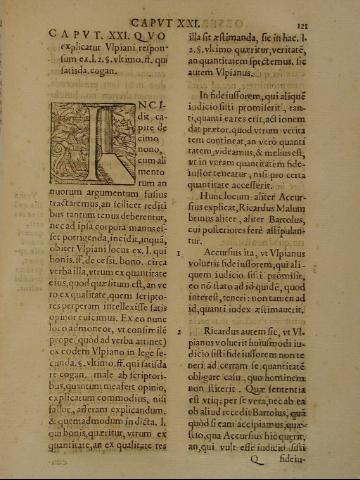 CAPVT XXI.
121
CAPVT. XXI. QVO
explicatur Vlpiani respon-
sum ex.l.2.§.vltimo.ff. qui
satisda.cogan.
INCI-
dit ca-
pite de
cimo
nono,
cum ali
mento
rum an
nuorum argumentum fusius
tractaremus, an scilicet reditibus
tantum tenus deberentur,
nec ad ipsa corpora manus esset
porrigenda, incidit, inquā,
obiter Vlpiani locus ex.l. qui
bonis.ff. de cessi. bono. circa
verba illa, vtrum ex quantitate
eius, quod quæsitum est, an vero
ex qualitate, quem scriptores
perperam intellexisse satis
opinor euicimus. Ex eo nunc
loco admoneor, vt consimilē
prope (quod ad verba attinet)
ex eodem Vlpiano in lege secunda.
§.vltimo.ff. qui satisda
re cogan. male ab scriptoribus,
quantum mea fert opinio,
explicatum commodius, nisi
fallor, afferam explicandum,
& quemadmodum in dicta.l.
qui bonis, quæritur, vtrum ex
quantitate, an ex qualitate res
illa sit æstimanda, sic in hac.l.
2.§.vltimo quæritur, veritatē,
an quantitatem spectemus, sic
autem Vlpianus.
In fideiussorem, qui aliquē
iudicio sisti promiserit, tanti,
quanti ea res erit, actionem
dat prætor. quod vtrum veritatem
contineat, an vero quanti
tatem, videamus, & melius est,
vt in veram quantitatem fideiussor
teneatur, nisi pro certa
quantitate accesserit.
Hunc locum aliter Accursius
explicat, Ricardus Malum
brinus aliter, aliter Bartolus,
cui posteriores fere astipulantur.
1
Accursius ita, vt Vlpianus
voluerit fideiussorem, qui aliquem
iudicio sisti promisit,
eo nō stato ad id quidē, quod
interest, teneri: non tamen ad
id, quanti iudex æstimauerit.
2
Ricardus autem sic, vt Vlpianus
voluerit huiusmodi iudicio
sisti fideiussorem non teneri
ad certam se quantitatē
obligare casu, quo hominem
non stiterit. Quæ sententia
est vtiq; per se vera, nec ab ea
ob aliud recedit Bartolus, quā
quod si eam accipiamus, quæstio,
qua Accursius hic quærit,
an, qui vult esse iudicio sisti
Q fideiu-